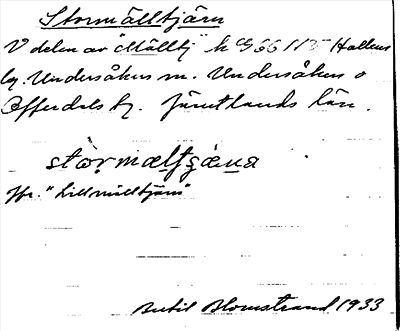 Stormälltjärn
V delen av "Mälltj" k G 66 115 Hallens
sn. Undersåkers m. Undersåkers o
Offerdals tg. Jämtlands län.
stormæltjæna
Jfr. "Lillmälltjärn"
Bertil Blomstrand 1933